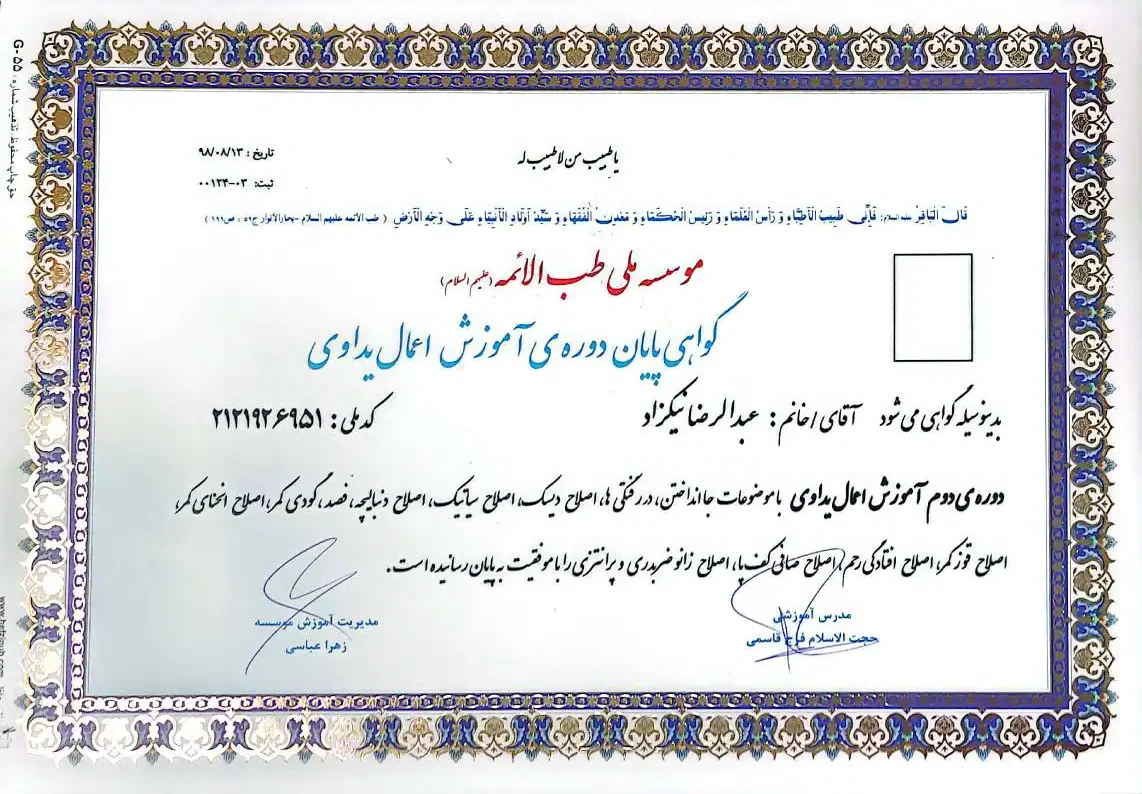 یا طبیب من لا طبیب له
تاریخ : ۹۸/۰۸/۱۳
ثبت: ۰۳-۰۰۱۲۴
قالَ الْباقِرُ علیه السلام: فَإِنِّی طَبِیبُ الْأَطِبَّاءِ وَ رَأْسُ الْعُلَمَاءِ وَ رَئِیسُ الْحُکَمَاءِ وَ مَعْدِنُ الْفُقَهَاءِ وَ سَیِّدُ أَوْلَادِ الْأَنْبِیَاءِ عَلَی وَجْهِ الْأَرْضِ ( طب الائمه علیهم السلام -بحارالأنوار ج۵۹ ؛ ص۱۹۹)
موسسه ملی طب الائمه (علیهم السلام)
گواهی پایان دوره ی آموزش اعمال یداوی
بدینوسیله گواهی می شود آقای /خانم : عبدالرضا نیکزاد کد ملی : ۲۱۲۱۹۲۶۹۵۱
دوره ی دوم آموزش اعمال یداوی با موضوعات جا انداختن، دررفتگی ها، اصلاح دیسک، اصلاح سیاتیک، اصلاح دنبالیچه، فصد، گودی کمر، اصلاح انحنای کمر،
اصلاح قوز کمر، اصلاح افتادگی رحم، اصلاح صافی کف پا، اصلاح زانو ضربدری و پرانتزی را با موفقیت به پایان رسانیده است.
مدرس آموزشی
حجت الاسلام فرج قاسمی
مدیریت آموزش موسسه
زهرا عباسی
حق چاپ محفوظ. تذهیب شماره : G-۵۵